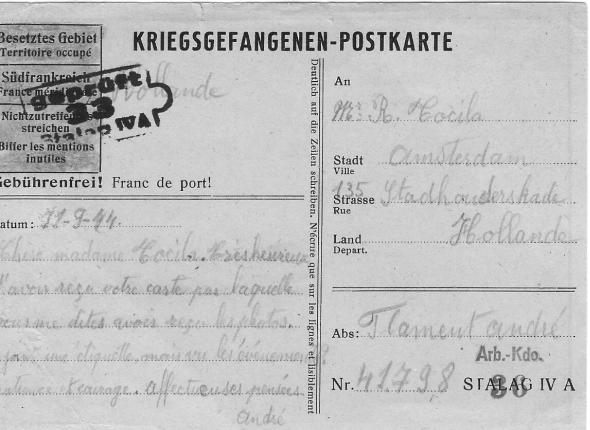 KRIEGSGEFANGENEN-POSTKARTE
Besetztes Gebiet
Territoire occupé
Südfrankreich
France méridionale
Nichtzutreffendes
streichen
Biffer les mentions
inutiles
Hollande
geprüft
33
Stalag IV A
Gebührenfrei! Franc de port!
Datum: 11-9-44
Chère madame Cocila. Très heureux
d'avoir reçu votre carte par laquelle
vous me dites avoir reçu les photos.
une etiquette mais vu les évènements
patience et courage. affectueuses pensées
andré
Deutlich auf die Zeilen schreiben. N'écrire que sur les lignes et lisiblement
An
Mr R. Cocila
Stadt Amsterdam
Ville
Strasse 135 Stadhouderskade
Rue
Land Hollande
Depart.
Abs: Flament andré
Arb.-Kdo.
Nr. 41798 STALAG IV A